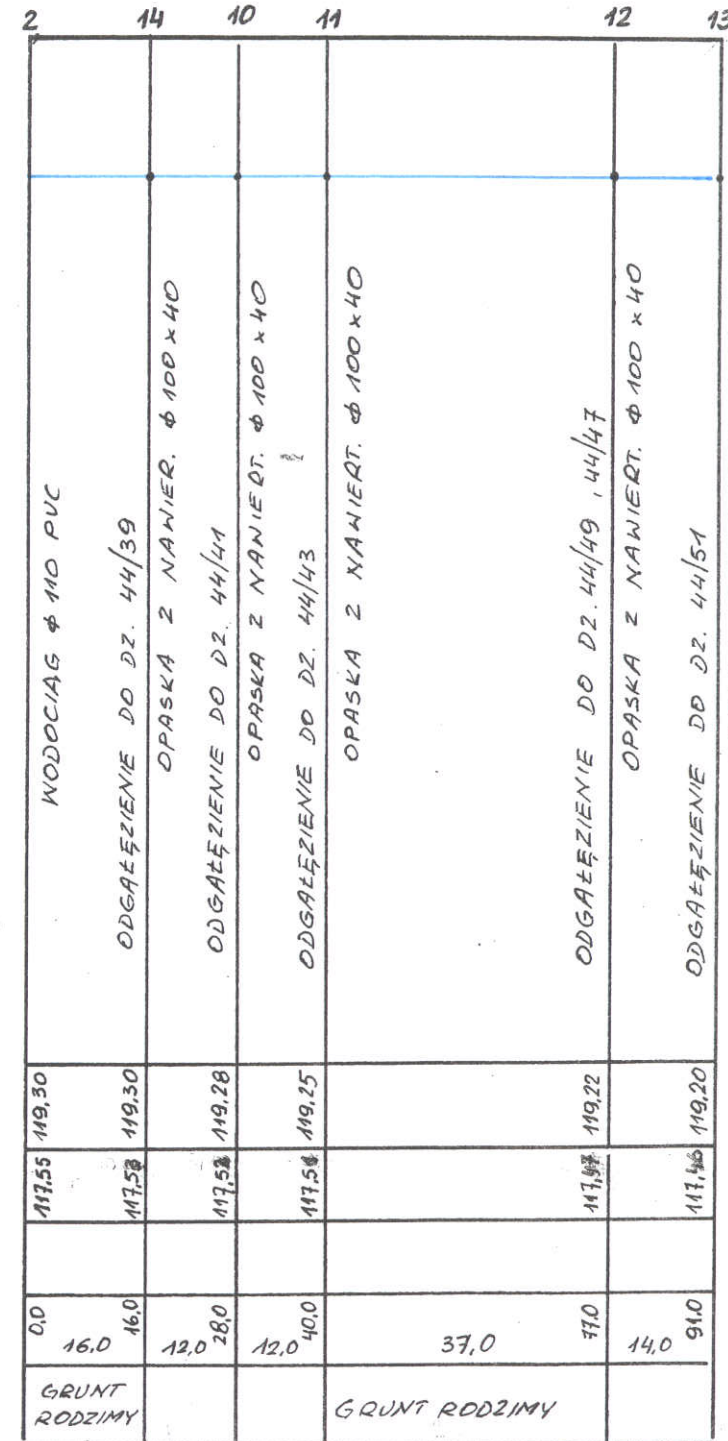 2 14 10 11 12 13
WODOCIĄG ϕ 110 PVC
ODGAŁĘZIENIE DO DZ. 44/39
OPASKA Z NAWIER. ϕ 100 x 40
ODGAŁĘZIENIE DO DZ. 44/41
OPASKA Z NAWIERT. ϕ 100 x 40
ODGAŁĘZIENIE DO DZ. 44/43
OPASKA Z NAWIERT. ϕ 100 x 40
ODGAŁĘZIENIE DO DZ. 44/49, 44/47
OPASKA Z NAWIERT. ϕ 100 x 40
ODGAŁĘZIENIE DO DZ. 44/51
119,30 119,30 119,28 119,25 119,22 119,20
117,55
0,0 16,0 28,0 40,0 77,0 91,0
16,0 12,0 12,0 37,0 14,0
GRUNT
RODZIMY
GRUNT RODZIMY